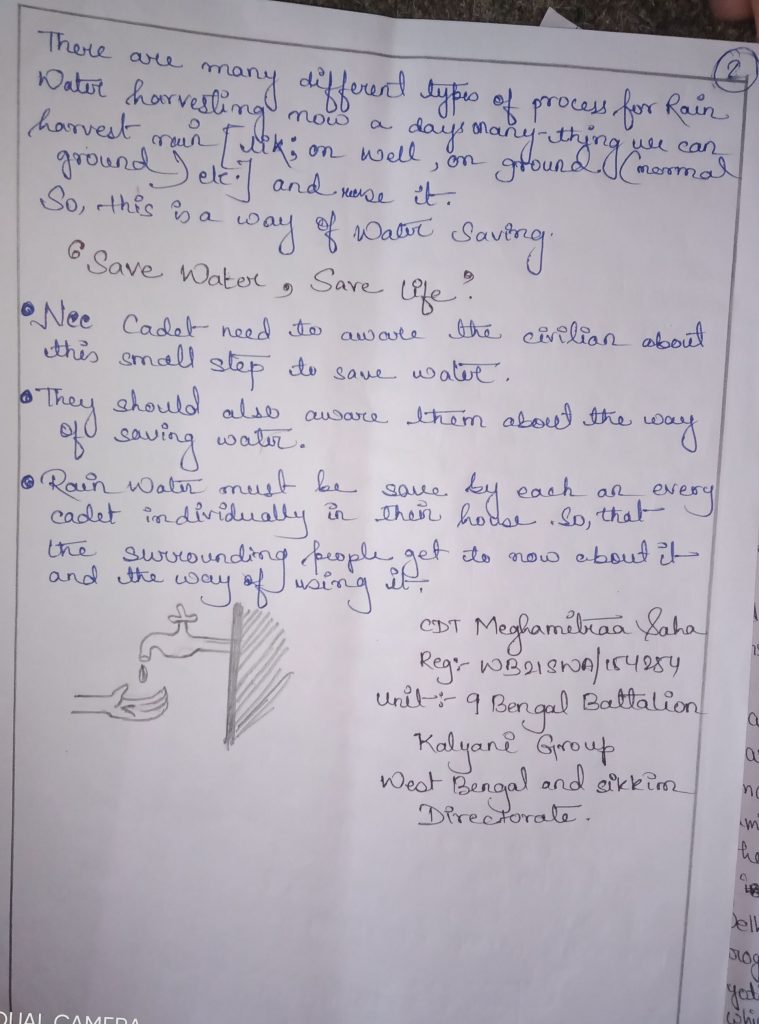 2
There are many different types of process for Rain
Water harvesting now a days many-thing we can
harvest rain [lik; on well, on ground (normal
ground) etc.] and reuse it.
So, this is a way of Water Saving.
"Save Water, Save life".
• Ncc Cadet need to aware the civilian about
this small step to save water.
• They should also aware them about the way
of saving water.
• Rain Water must be save by each an every
cadet individually in their house. So, that
the surrounding people get to now about it
and the way of using it.
CDT Meghamitraa Saha
Reg:- WB21SWA/154284
unit:- 9 Bengal Battalion
Kalyani Group
West Bengal and sikkim
Directorate.
DUAL CAMERA